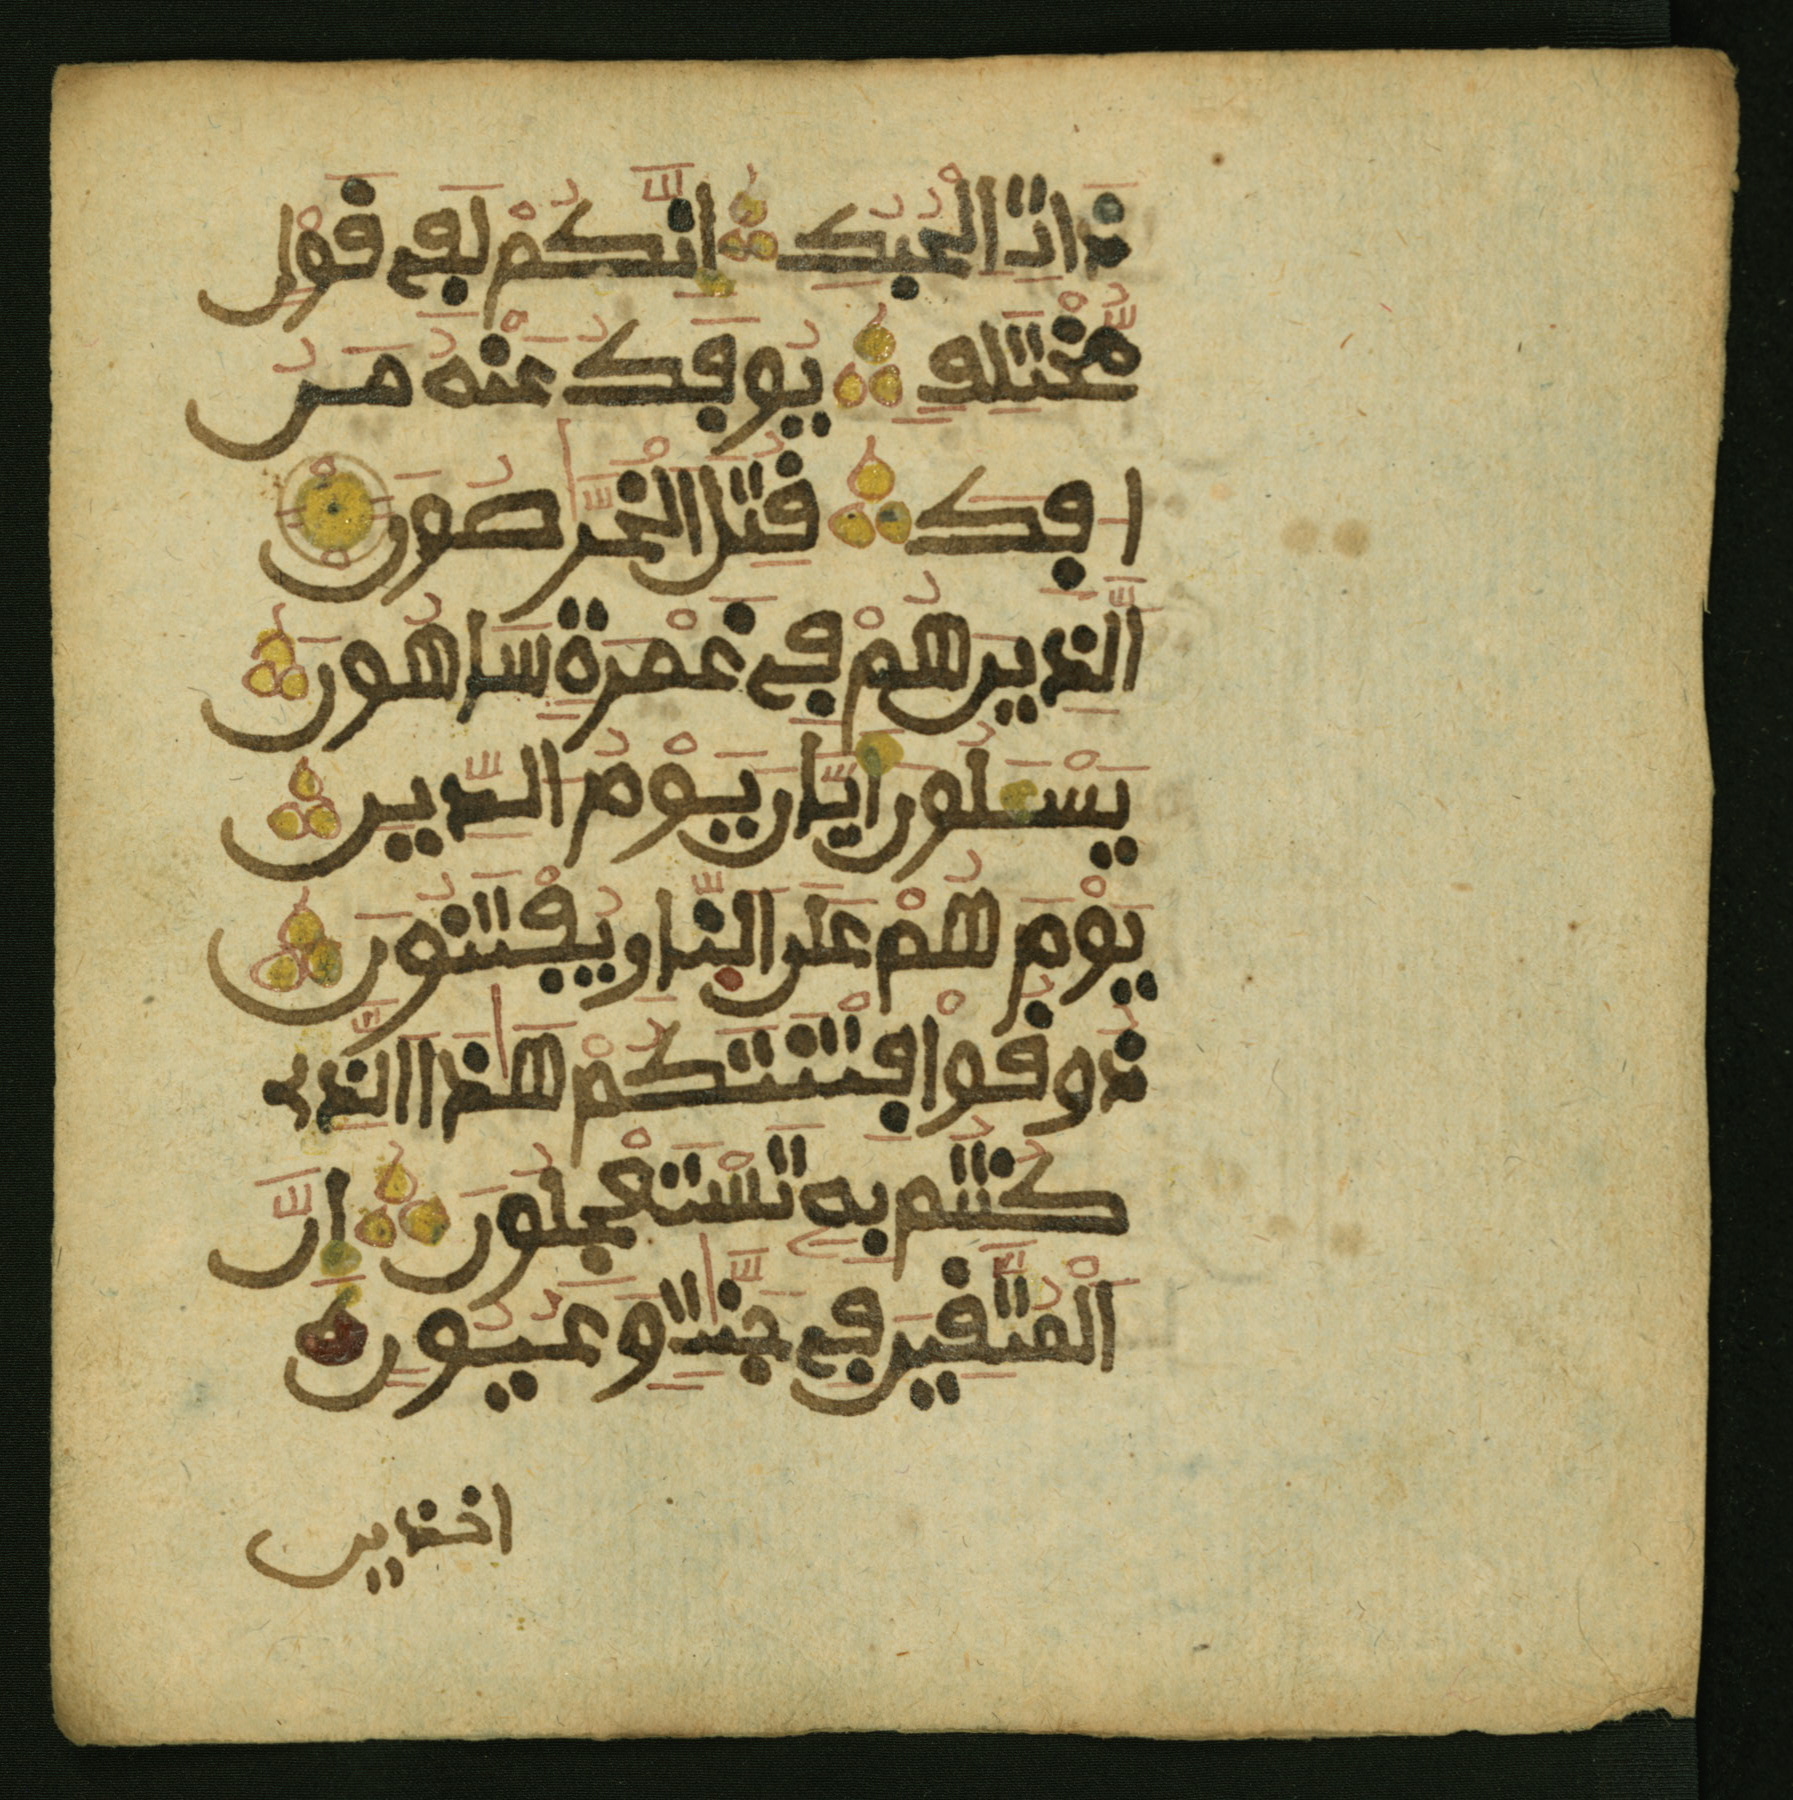 ذات الْحُبُكِ اِنَّكُمْ لَفِے قَوْلٍ
مُّخْتَلِفٍ يُوفَكُ عَنْهُ مَنُ
ا۟فِكَ قُتِلَ الْخَرَّٰصُونَ
اَلذِينَ هُمْ فِے غَمْرَةٍ سَاهُونَ
يَسْـَٔلُونَ أَيَّانَ يَوْمُ الدِّينِ
يَوْمَ هُمْ عَلَى النَّارِ يُفْتَنُونَ
ذُوقُوا۟ فِتْنَتَكُمْ هَٰذَا اَلذِے
كُنتُم بِهِۦ تَسْتَعْجِلُونَ اِنَّ
اَلْمُتَّقِينَ فِے جَنَّٰتٍ وَعُيُونٍ
اخذين